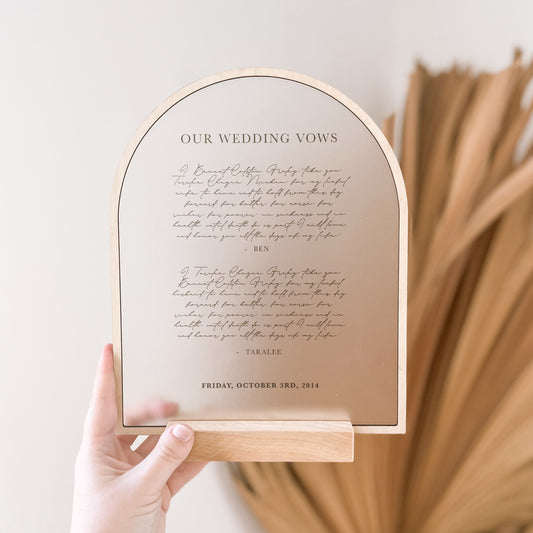 OUR WEDDING VOWS
I Bennet take you
for my lawful
wife to have and to hold from this day
forward for better for worse for
richer for poorer in sickness and in
health until death do us part I will love
and honor you all the days of my life
- BEN
I Taralee Cheyne take you
Bennet for my lawful
husband to have and to hold from this day
forward for better for worse for
richer for poorer in sickness and in
health until death do us part I will love
and honor you all the days of my life
- TARALEE
FRIDAY, OCTOBER 3RD, 2014